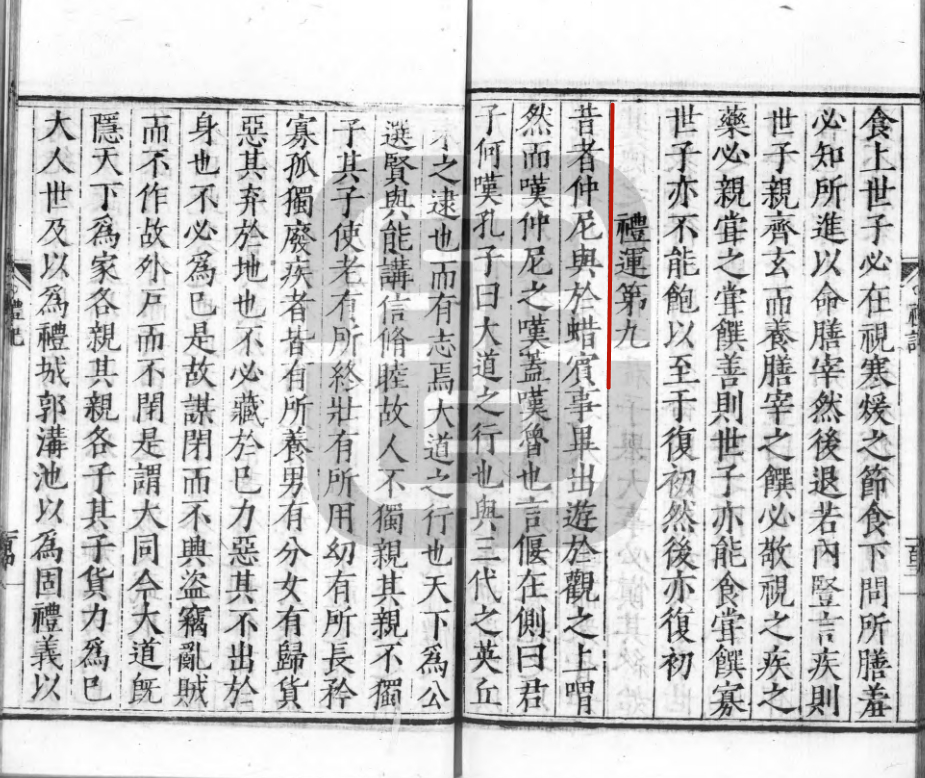 食上世子必在視寒煖之節食下問所膳羞
必知所進以命膳宰然後退若內豎言疾則
世子親齊玄而養膳宰之饌必敬視之疾之
藥必親甞之甞饌善則世子亦能食甞饌寡
世子亦不能飽以至于復初然後亦復初
禮運第九
昔者仲尼與於蜡賓事畢出遊於觀之上喟
然而嘆仲尼之嘆蓋嘆魯也言偃在側曰君
子何嘆孔子曰大道之行也與三代之英丘
未之逮也而有志焉大道之行也天下為公
選賢與能講信脩睦故人不獨親其親不獨
子其子使老有所終壯有所用幼有所長矜
寡孤獨廢疾者皆有所養男有分女有歸貨
惡其弃於地也不必藏於己力惡其不出於
身也不必為己是故謀閉而不興盜竊亂賊
而不作故外戶而不閉是謂大同今大道既
隱天下為家各親其親各子其子貨力為己
大人世及以為禮城郭溝池以為固禮義以
禮記